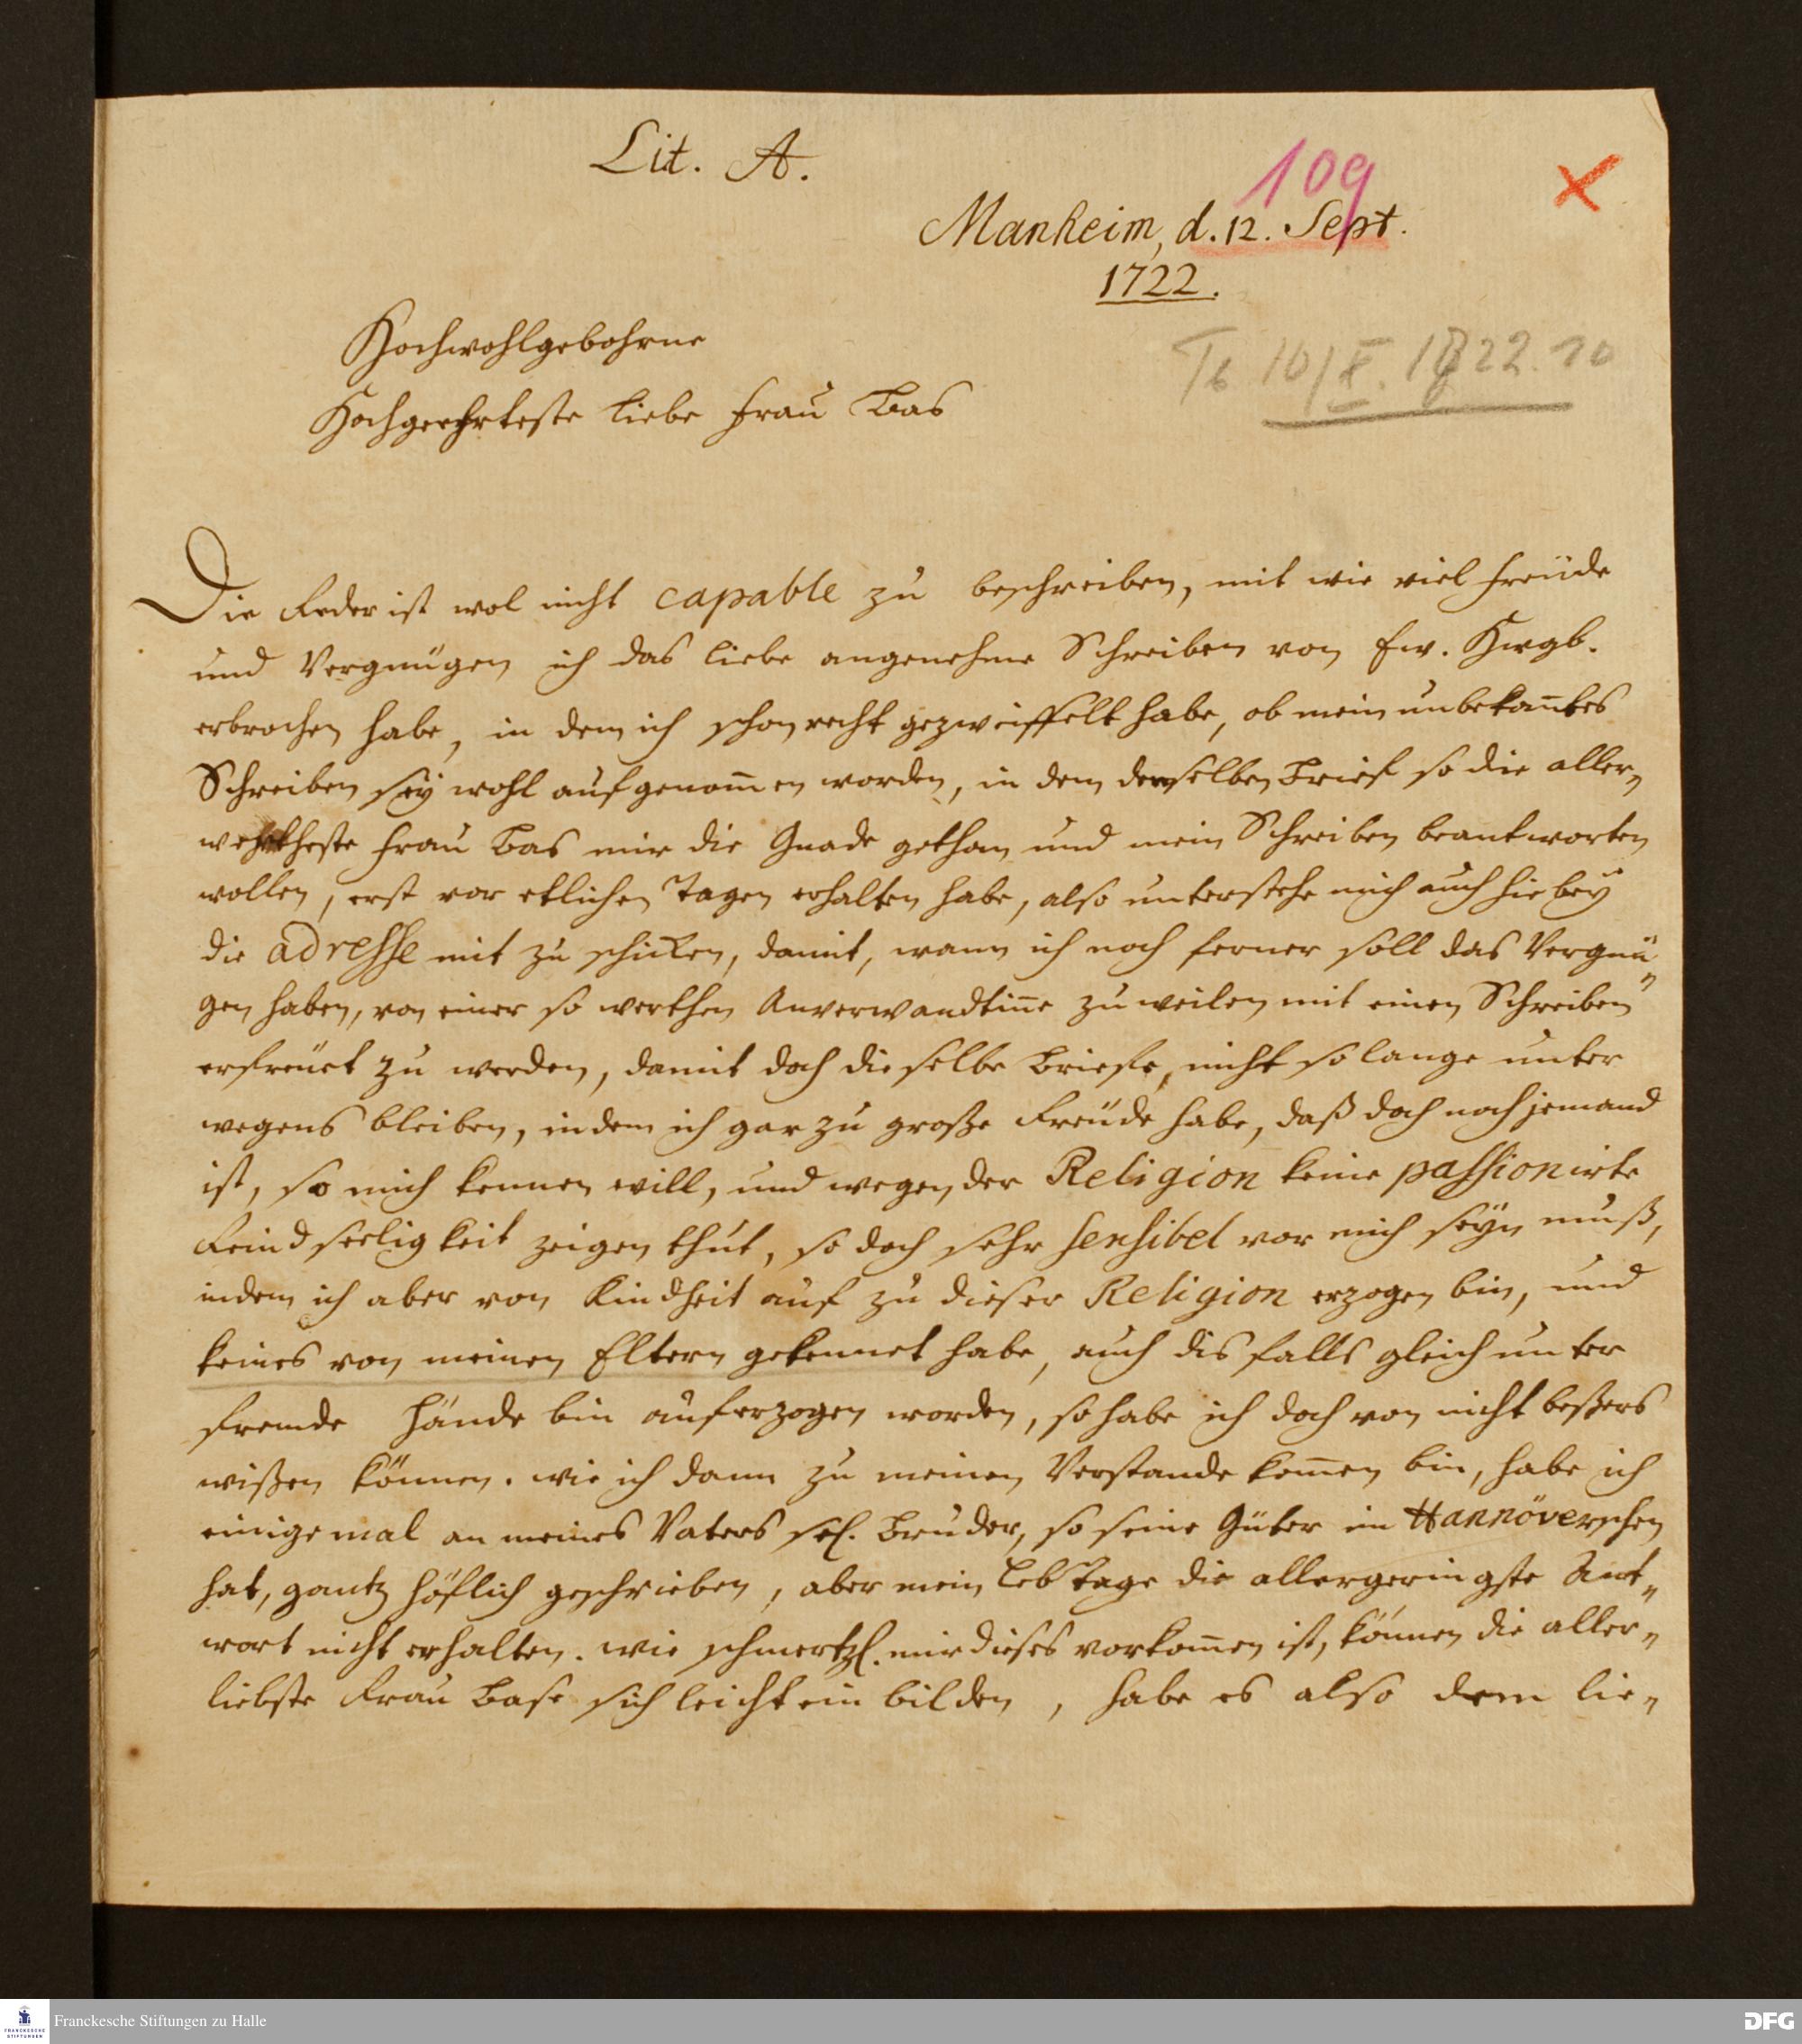 Lit. A.
109
Manheim, d. 12. Sept.
1722.
Hochwohlgebohrne
Hochgeehrteste liebe Frau Bas
Die Feder ist wol nicht capable zu beschreiben, mit wie viel Freüde
und Vergnügen ich das liebe angenehme Schreiben von Ew. Hwgb.
erbrochen habe, in dem ich schon recht gezweiffelt habe, ob mein unbekan̄tes
Schreiben seÿ wohl aufgenom̄en worden, in dem denselben Brief so die aller„
wehrtheste Frau Bas mir die Gnade gethan und mein Schreiben beantworten
wollen, erst vor etlichen Tagen erhalten habe, also unterstehe mich auch hiebeÿ
die adresse mit zu schicken, damit, wann ich noch ferner soll das Vergnü„
gen haben, von einer so werthen Anverwandtin̄e zuweilen mit einen Schreiben
erfreüet zu werden, damit doch dieselbe Briefe, nicht so lange unter
wegens bleiben, indem ich gar zu große Freüde habe, daß doch noch jemand
ist, so mich kennen will, und wegen der Religion keine passionirte
Feindseeligkeit zeigen thut, so doch sehr sensibel vor mich seÿn muß,
indem ich aber von Kindheit auf zu dieser Religion erzogen bin, und
keines von meinen Eltern gekennet habe, auch dis falls gleich unter
fremde Hände bin auferzogen worden, so habe ich doch von nicht beßers
wißen können. wie ich dann zu meinen Verstande kom̄en bin, habe ich
einige mal an meines Vaters sel. Bruder, so seine Güter im Hannöverschen
hat, gantz höflich geschrieben, aber mein Lebtage die allergeringste Ant„
wort nicht erhalten. wie schmertzl. mir dieses vorkom̄en ist, können die aller„
liebste Frau Base sich leicht ein bilden, habe es also dem lie„
Franckesche Stiftungen zu Halle
FRANCKESCHE
STIFTUNGEN
DFG